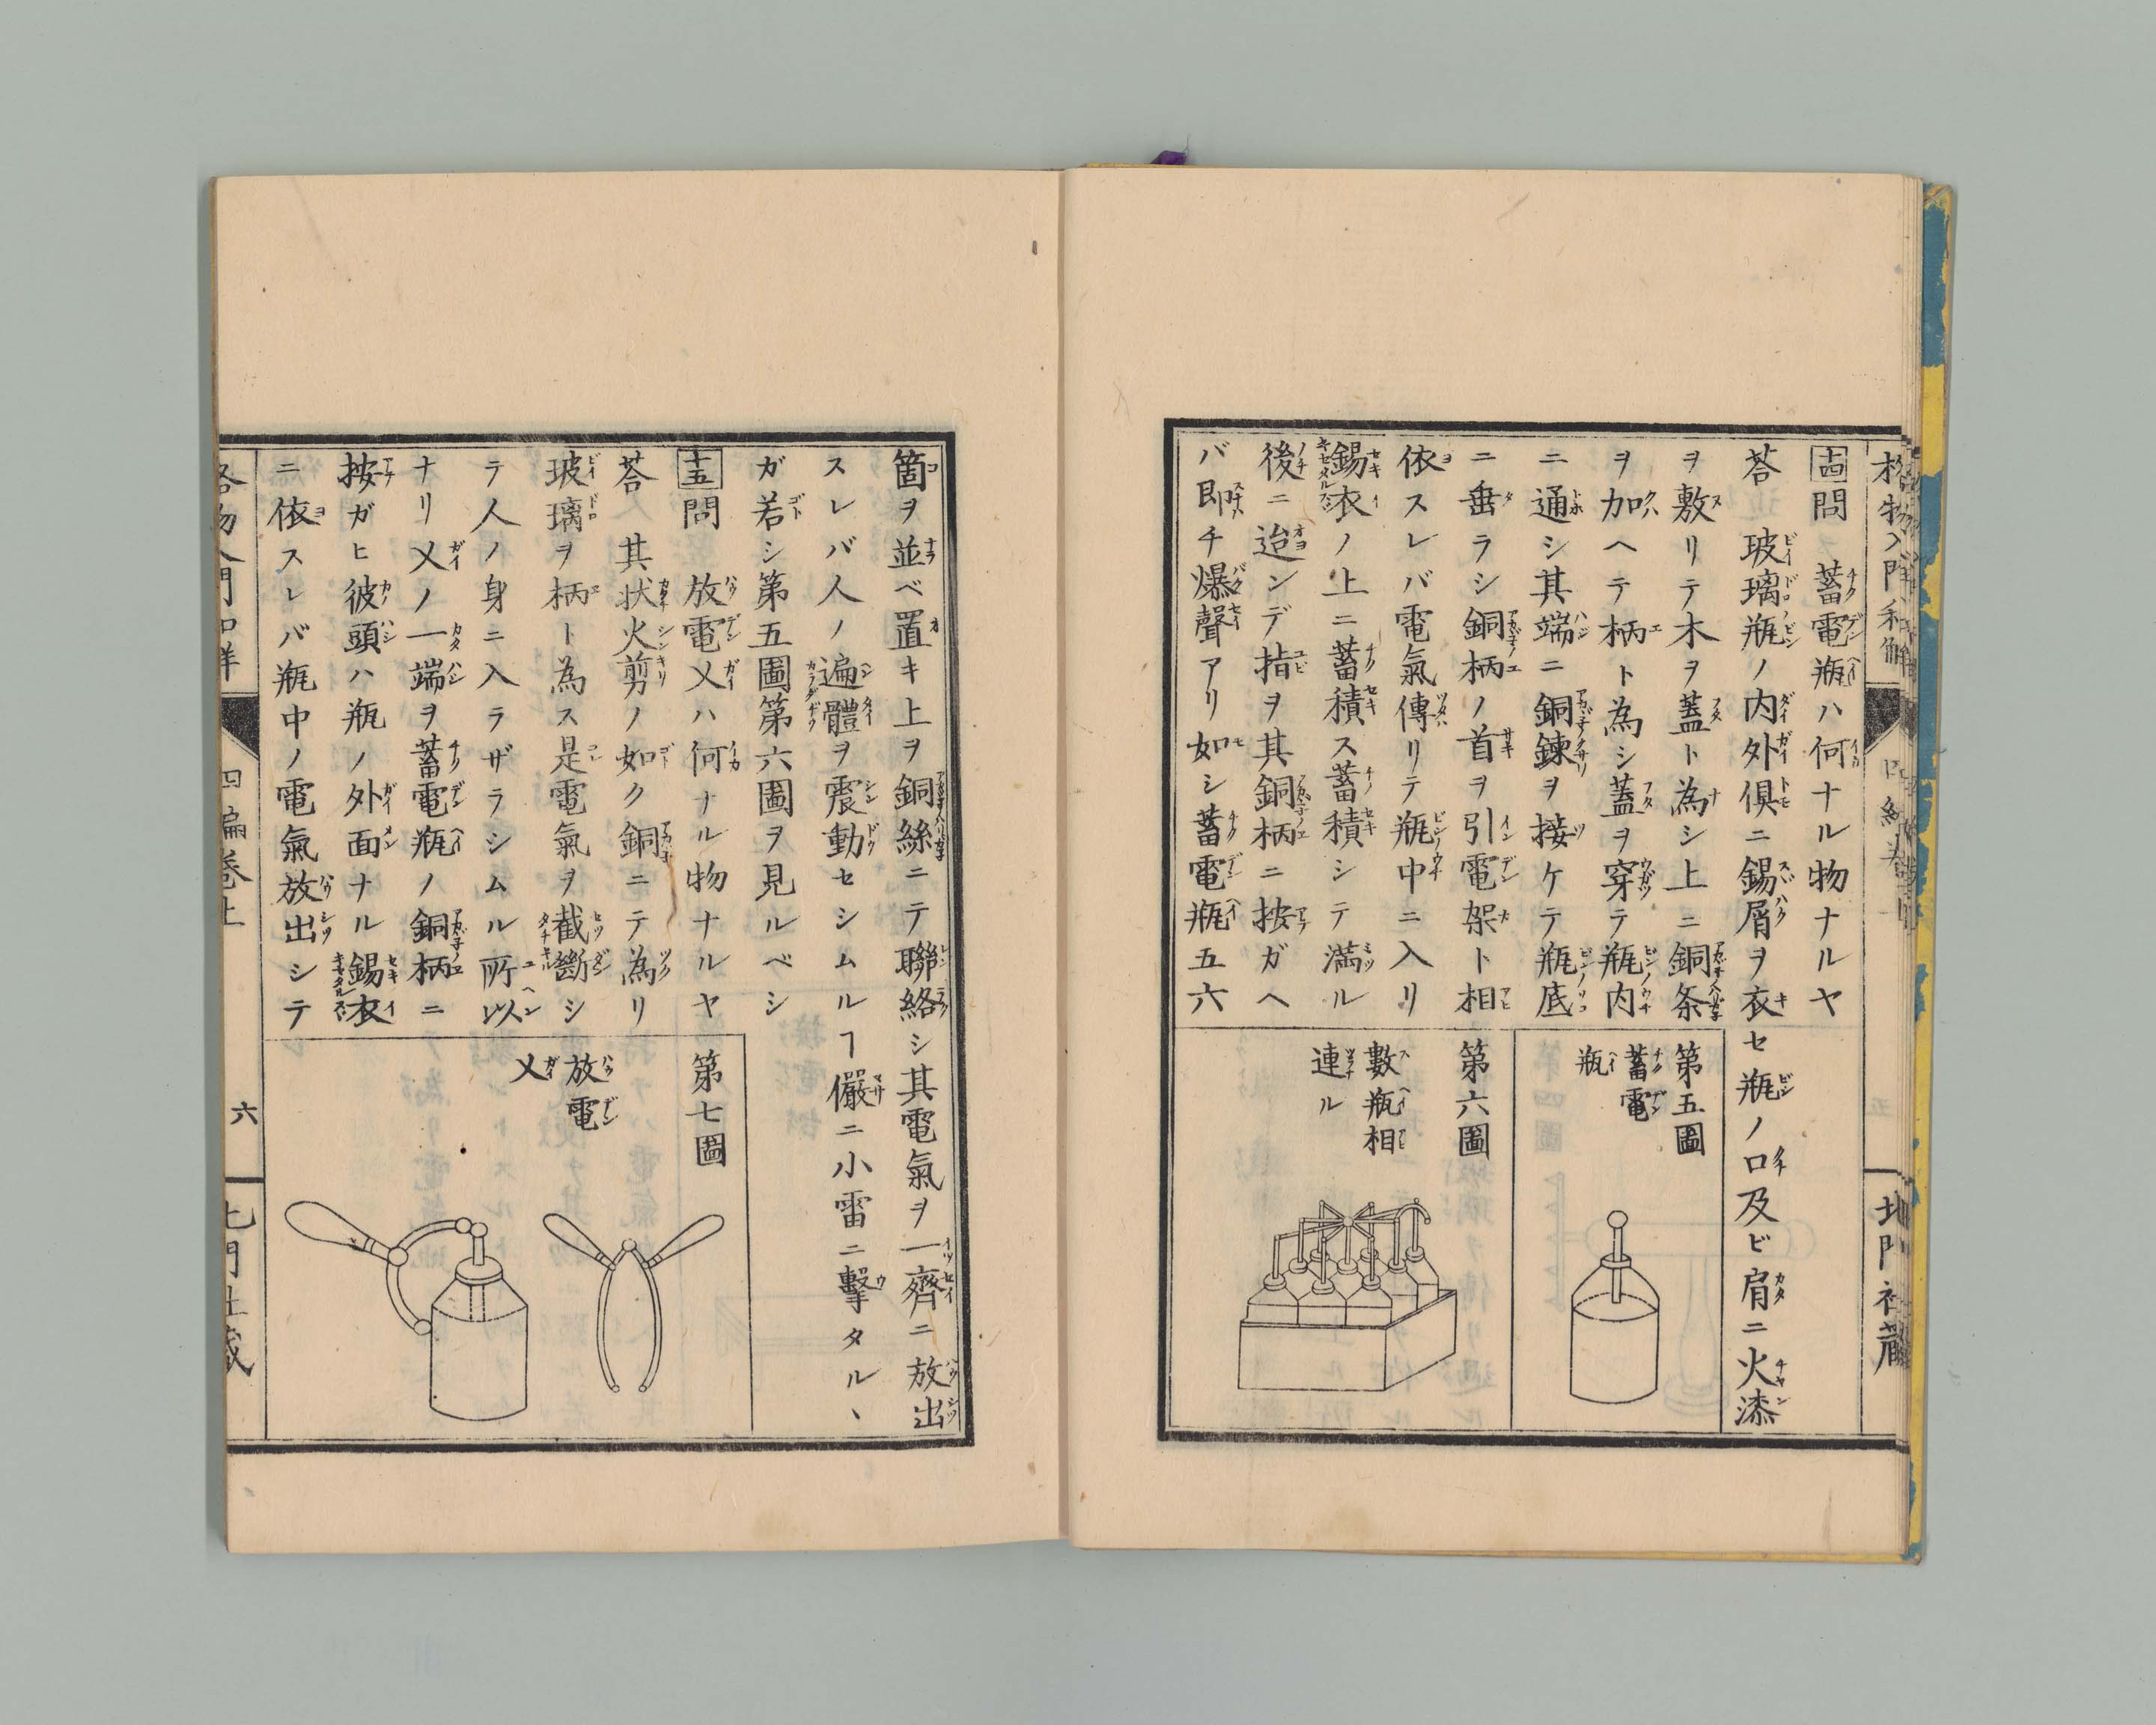 格物入門和解
四編卷上
北門社藏
十四問 蓄電瓶ハ何ナル物ナルヤ
答 玻璃瓶ノ内外俱ニ錫屑ヲ衣セ瓶ノ口及ビ肩ニ火漆
ヲ敷リテ木ヲ蓋ト為シ上ニ銅条
ヲ加ヘテ柄ト為シ蓋ヲ穿テ瓶内
ニ通シ其端ニ銅鍊ヲ接ケテ瓶底
ニ垂ラシ銅柄ノ首ヲ引電架ト相
依スレバ電氣傳リテ瓶中ニ入リ
錫衣ノ上ニ蓄積ス蓄積シテ満ル
後ニ迨ンデ指ヲ其銅柄ニ按ガヘ
バ即チ爆聲アリ如シ蓄電瓶五六
第五圖
蓄電
瓶
第六圖
數瓶相
連ル
箇ヲ並ベ置キ上ヲ銅絲ニテ聯絡シ其電氣ヲ一齊ニ放出
スレバ人ノ遍體ヲ震動セシムルヿ儼ニ小雷ニ擊タルヽ
ガ若シ第五圖第六圖ヲ見ルベシ
十五問 放電乂ハ何ナル物ナルヤ
答 其状火剪ノ如ク銅ニテ為リ
玻璃ヲ柄ト為ス是電氣ヲ截斷シ
テ人ノ身ニ入ラザラシムル所以
ナリ乂ノ一端ヲ蓄電瓶ノ銅柄ニ
按ガヒ彼頭ハ瓶ノ外面ナル錫衣
ニ依スレバ瓶中ノ電氣放出シテ
第七圖
放電
乂
格物入門和解
四編卷上
六
北門社藏